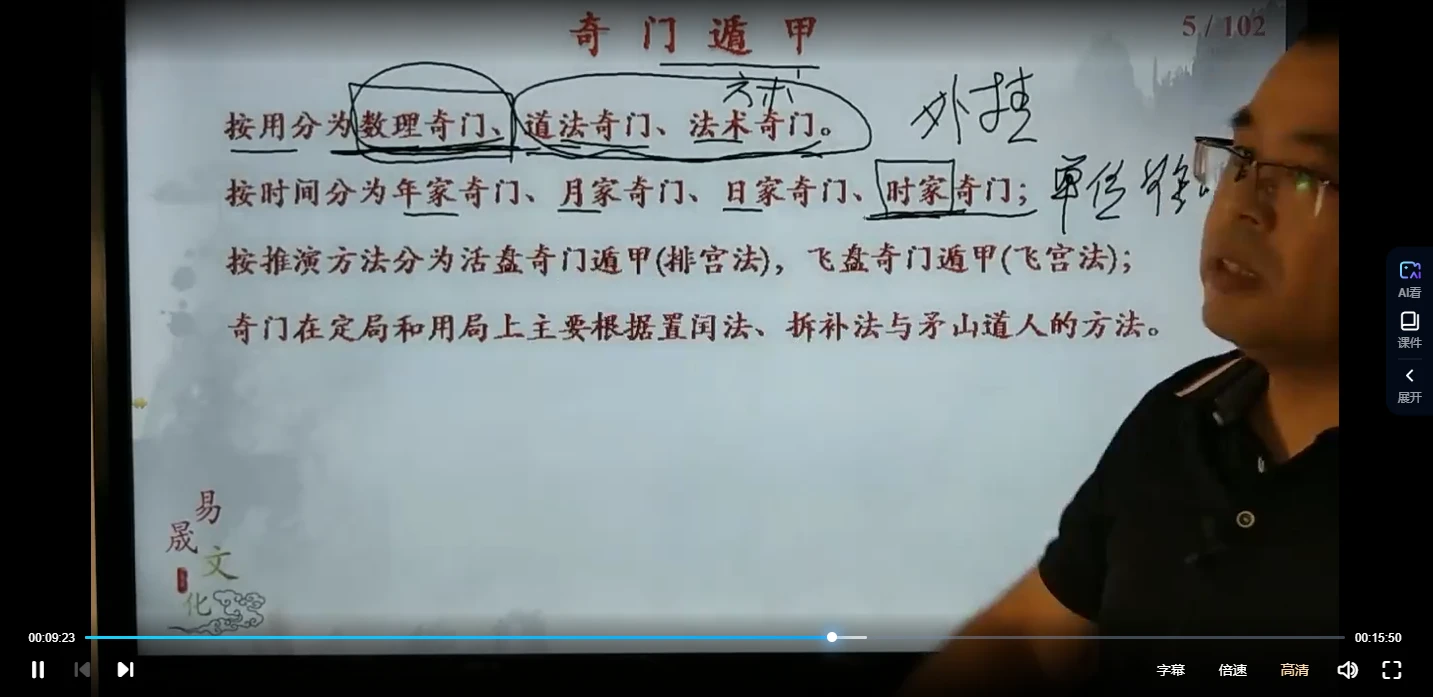 奇门遁甲
5 / 102
方术
外挂
按用分为数理奇门、道法奇门、法术奇门。
按时间分为年家奇门、月家奇门、日家奇门、时家奇门;
按推演方法分为活盘奇门遁甲(排宫法),飞盘奇门遁甲(飞宫法);
奇门在定局和用局上主要根据置闰法、拆补法与矛山道人的方法。
易晟文化
AI看
课件
展开
00:09:23
00:15:50
字幕
倍速
高清